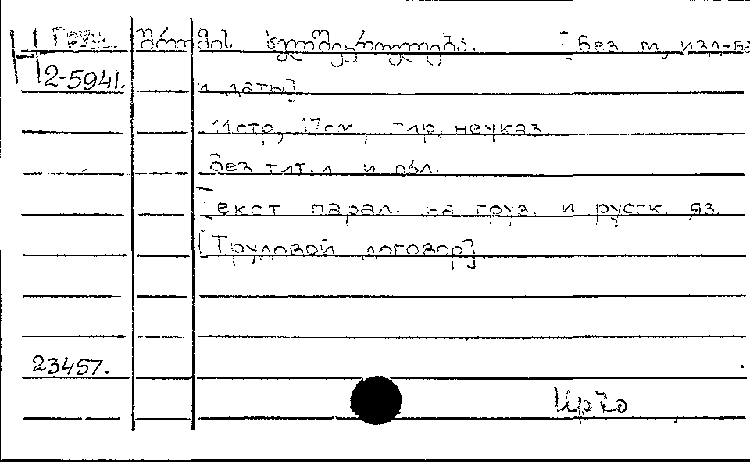 Груз. შრომის ხელშეკრულება. [Без м, изд-ва
Н 2-5941. и даты]
11стр, 17см, тир, неуказ
Без тит. л и обл.
[Текст парал. на груз. и русск. яз.
[Трудовой договор]
23457.